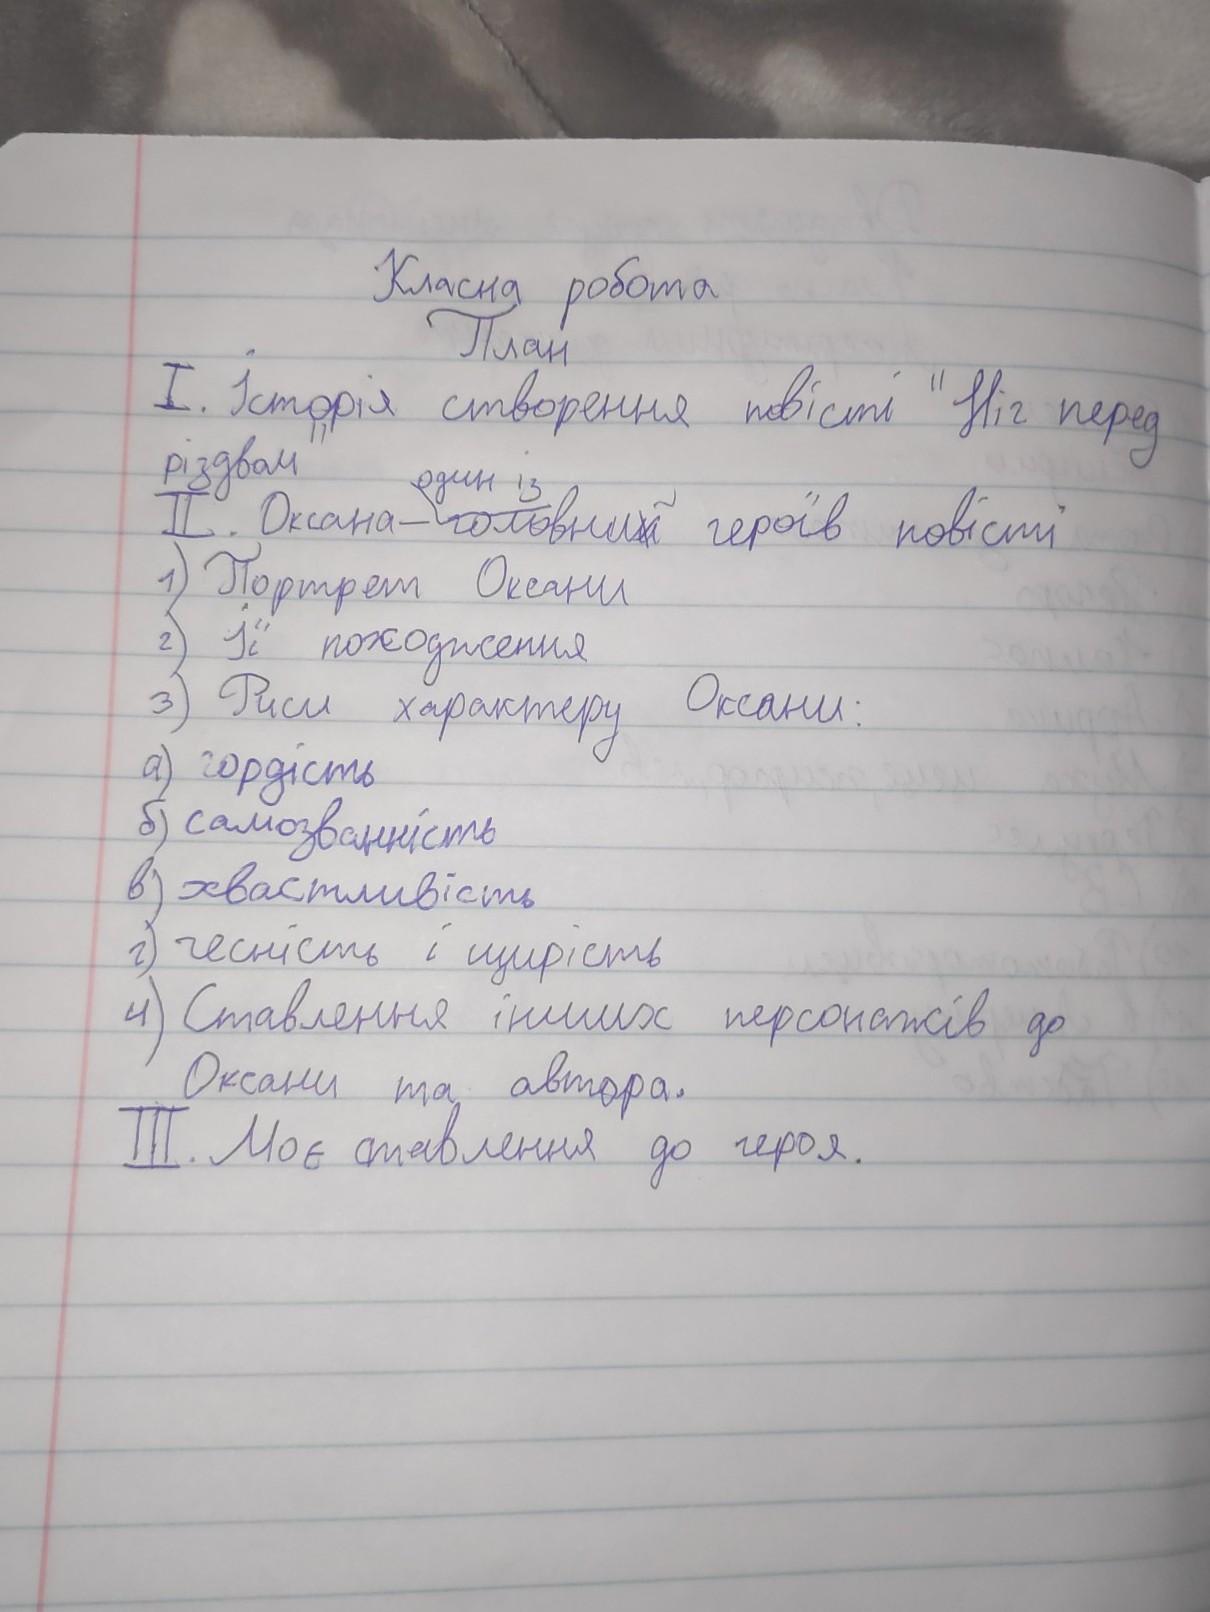 Класна робота
План
I. Історія створення повісті "Ніч перед
різдвом"
один із
II. Оксана – головних героїв повісті
1) Портрет Оксани
2) Її походження
3) Риси характеру Оксани:
а) гордість
б) самозванність
в) хвастливість
г) чесність і щирість
4) Ставлення інших персонажів до
Оксани та автора.
III. Моє ставлення до героя.